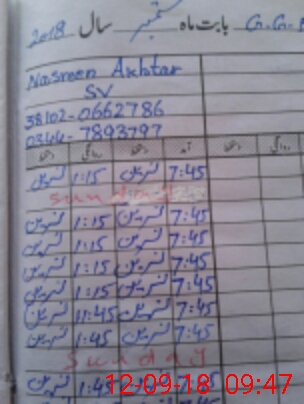 بابت ماہ ستمبر سال 2018
Nasreen Akhtar
SV
38102-0662786
0344-7893797
دستخط روانگی دستخط آمد دستخط روانگی
نسرین 1:15 نسرین 7:45
sunday
نسرین 1:15 نسرین 7:45
نسرین 1:15 نسرین 7:45
نسرین 1:15 نسرین 7:45
نسرین 1:15 نسرین 7:45
نسرین 11:45 نسرین 7:45
نسرین 1:45 نسرین 7:45
Sunday
نسرین 1:45 7:45
12-09-18 09:47